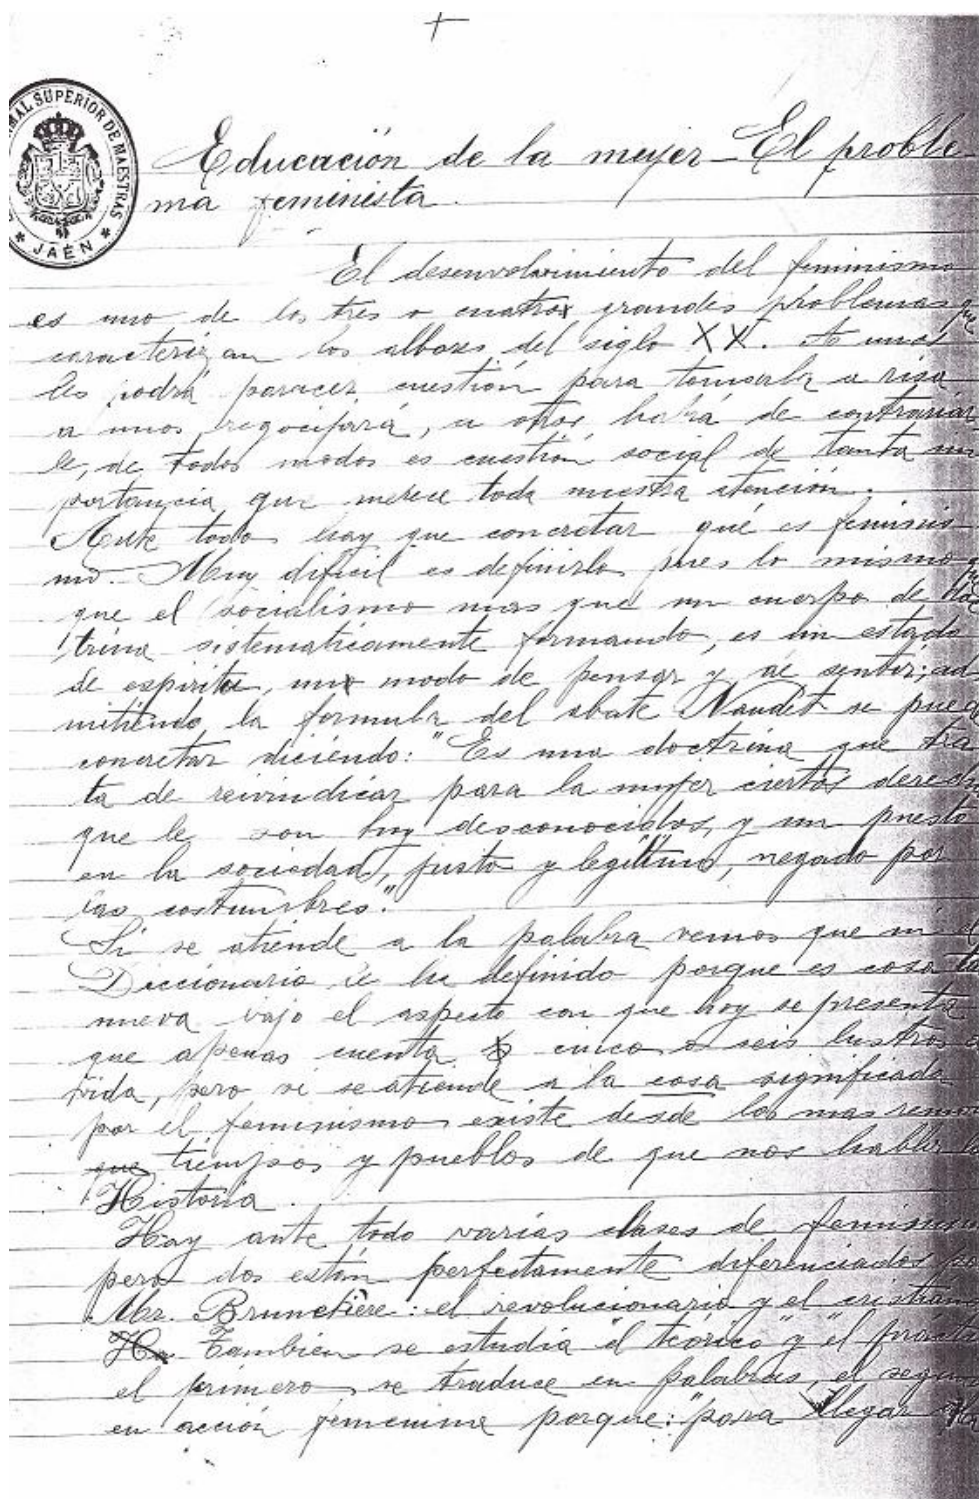 MAL SUPERIOR DE MAESTRAS
* JAÉN *
Educación de la mujer - El proble
ma feminista.
El desenvolvimiento del feminismo
es uno de los tres o cuatro grandes problemas
caracterizan los albores del siglo XX. A unos
les podrá parecer cuestión para tomarla a risa
a unos regocijará, a otros habrá de contrariar
le, de todos modos es cuestión social de tanta im
portancia que merece toda nuestra atención.
Ante todo hay que concretar qué es feminis
mo. Muy dificil es definirlo pues lo mismo
que el socialismo mas que un cuerpo de doc
trina sistematicamente formando, es un estado
de espiritu, un modo de pensar y de sentir; ad
mitiendo la formula del abate Naudet se pued
concretar diciendo: "Es una doctrina que tra
ta de reivindicar para la mujer ciertos derech
que le son hoy desconocidos, y un puesto
en la sociedad, justo y legítimo, negado por
las costumbres."
Si se atiende a la palabra vemos que ni el
Diccionario le ha definido porque es cosa tan
nueva vajo el aspecto con que hoy se presenta
que apenas cuenta cinco o seis lustros d
vida, pero si se atiende a la cosa significada
por el feminismo existe desde los mas remo
que tiempos y pueblos de que nos habla la
Historia.
Hay ante todo varias clases de feminism
pero dos están perfectamente diferenciados po
Mr. Brunetière: el revolucionario y el cristian
Ha Tambien se estudia "el teórico" y "el práctic
el primero se traduce en palabras, el segun
en acción femenina porque: "para llegar